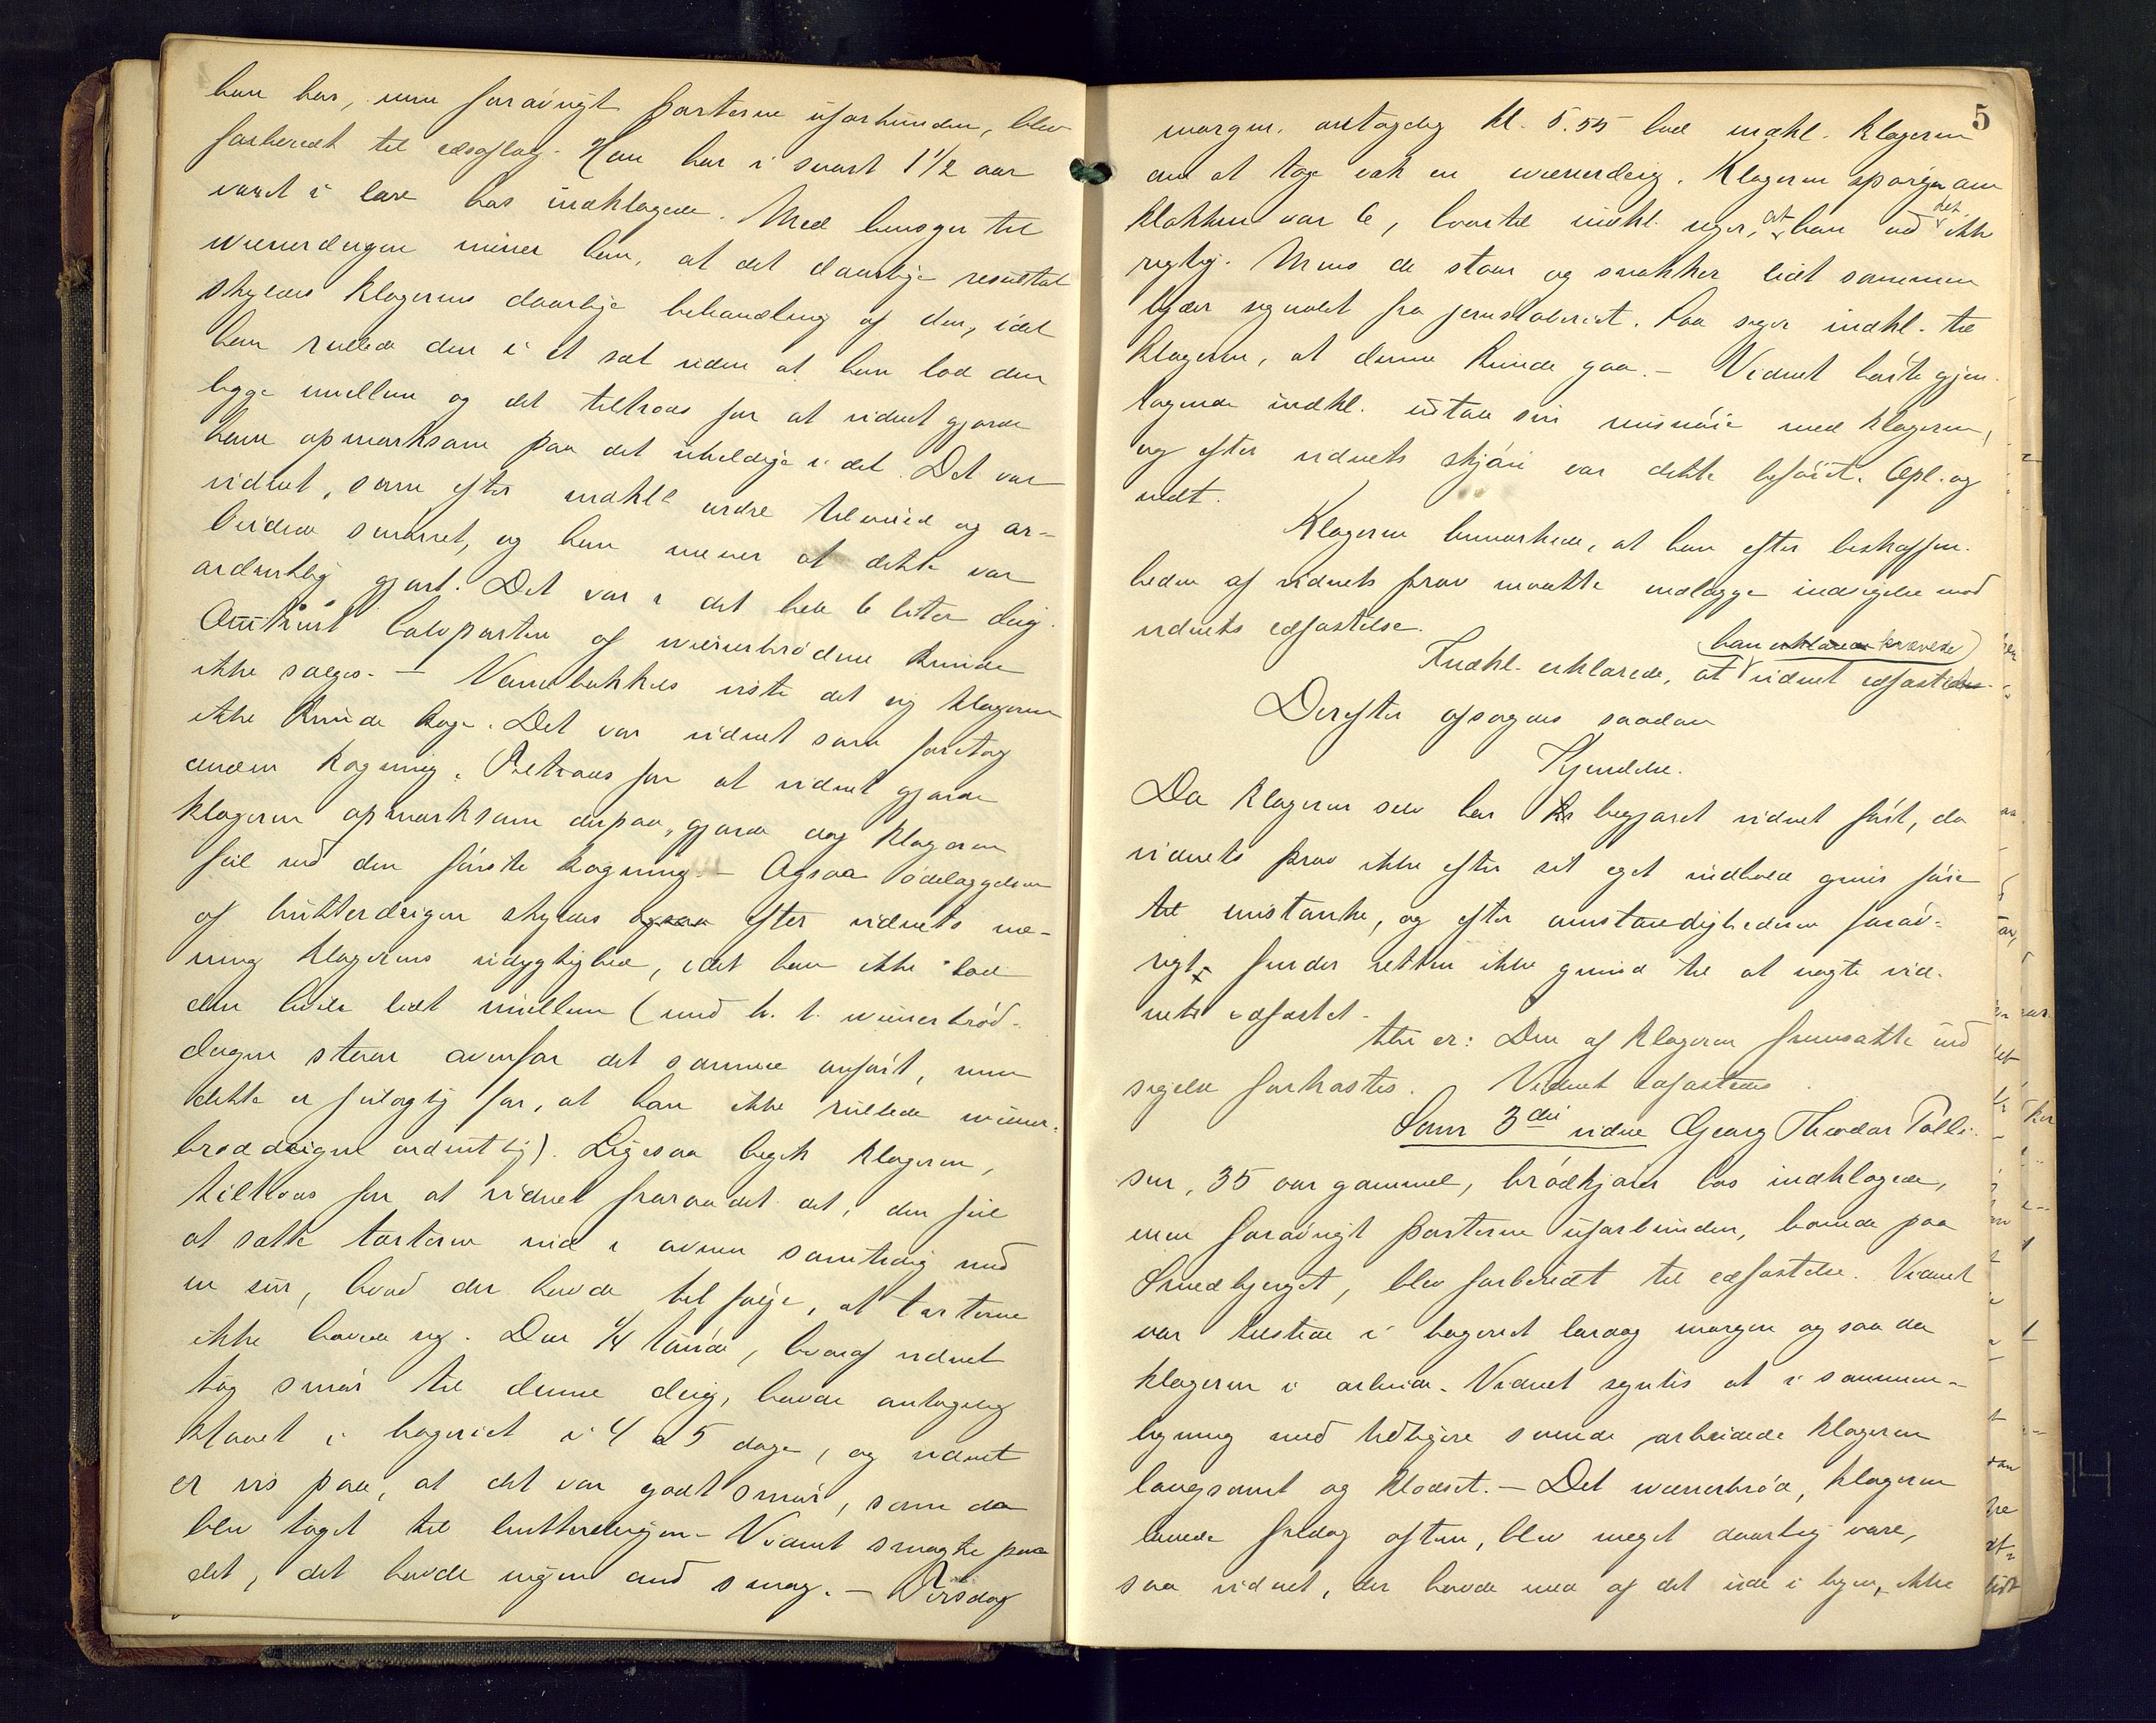 han har, men forøvrigt parterne uforbunden, blev
forberedt til edsaflæg. Han har i snart 1 1/2 aar
været i lære hos indklagede. Med hensyn til
wienerdeigen mener han, at det daarlige resultat
skyldes klagerens daarlige behandling af den, idet
han rullede den i et sæt uden at han lod den
ligge imellem og det tiltrods for at vidnet gjorde
ham opmærksom paa det uheldige i det. Det var
vidnet, som efter indkl.s ordre tilveied og ar-
beidede smørret, og han mener at dette var
ordentlig gjort. Det var i det hele 6 liter deig.
Omtrent halvparten af wienerbrødene kunde
ikke sælges. — Vandbakkels viste det sig klageren
ikke kunde koge. Det var vidnet som foretog
anden kogning. Tiltrods for at vidnet gjorde
klageren opmærksom derpaa, gjorde dog klageren
feil ved den første kogning. — Ogsaa ødelæggelsen
af butterdeigen skyldes ogsaa efter vidnets me-
ning klagerens udygtighed, idet han ikke lod
den hvile lidt imellem (med h. t. wienerbrød-
deigen staar ovenfor det samme anført, men
dette er feilagtig for, at han ikke rullede wiener-
brøddeigen ordentlig). Ligesaa begik klageren,
tiltrods for at vidnet fraraadet det, den feil
at sætte tærterne ind i ovnen samtidig med
en sur, hvad der havde til følge, at tærterne
ikke hævede sig. Den 1/4 tønde, hvoraf vidnet
tog smør til denne deig, havde antagelig
staaet i bageriet i 4 a 5 dage, og vidnet
er vis paa, at det var godt smør, som da
blev taget til butterdeigen. Vidnet smagte paa
det, det havde ingen ond smag. — Tirsdag
5
morgen, antagelig kl. 5.55 bad indkl. klageren
om at tage væk en wienerdeig. Klageren spørger om
klokken var 6, hvortil indkl. siger, at han ved det ikke
rigtig. Mens de staar og snakker lidt sammen
lyder signalet fra jernstøberiet. Saa siger indkl. til
klageren, at denne kunde gaa. — Vidnet hørte gjen-
tagende indkl. udtale sin misnøie med klageren,
og efter vidnets skjøn var dette beføiet. Opl. og
vedt.
Klageren bemærkede, at han efter beskaffen-
heden af vidnets prov maatte nedlægge indsigelse mod
vidnets edfæstelse.
han erklærede krævede
Indkl. erklærede, at vidnet edfæstedes.
Derefter afsagdes saadan
Kjendelse.
Da klageren selv har begjæret vidnet ført, da
vidnets prov ikke efter sit eget indhold giver føie
til mistanke, og efter omstændighederne forøv-
rigt finder retten ikke grund til at nægte vid-
nets edfæstet.
thi er: Den af klageren fremsatte ind
sigelse forkastes. Vidnet edfæstedes.
Som 3die vidne Georg Theodor Palle-
sen, 35 aar gammel, brødkjører hos indklagede,
men forøvrigt parterne uforbunden, boende paa
Smedbjerget, blev forberedt til edfæstelse. Vidnet
var tilstede i bageriet lørdag morgen og saa da
klageren i arbeide. Vidnet syntis at i sammen-
ligning med tidligere svende arbeidede klageren
langsomt og klodset. — Det wienerbrød, klageren
lavede fredag aften, blev meget daarlig vare,
saa vidnet, der havde med af det ude i byen, ikke